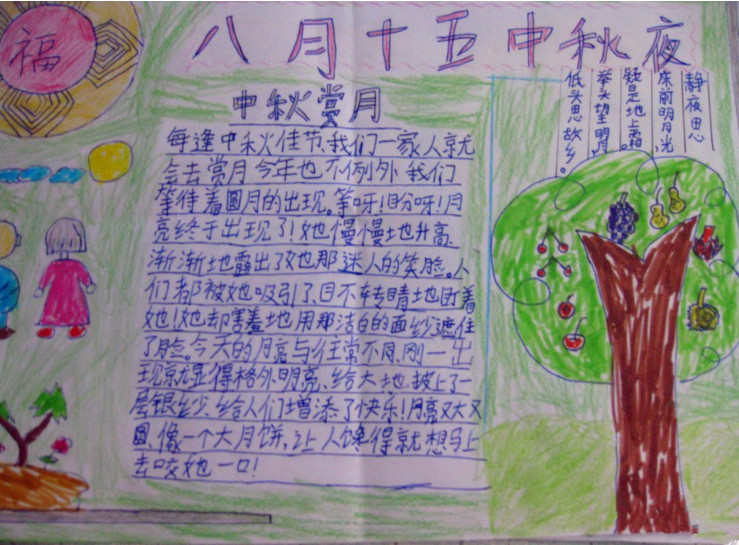 福
八月十五中秋夜
中秋赏月
每逢中秋佳节,我们一家人就
会去赏月今年也不例外,我们
等待着圆月的出现。等呀!盼呀!月
亮终于出现了!她慢慢地升高、
渐渐地露出了她那迷人的笑脸。人
们都被她吸引了、目不转睛地盯着
她!她却害羞地用那洁白的面纱遮住
了脸。今天的月亮与往常不同,刚一出
现就显得格外明亮、给大地披上了一
层银纱、给人们增添了快乐!月亮又大又
圆、像一个大月饼,让人馋得就想马上
去咬她一口!
静夜思
床前明月光,
疑是地上霜。
举头望明月,
低头思故乡。